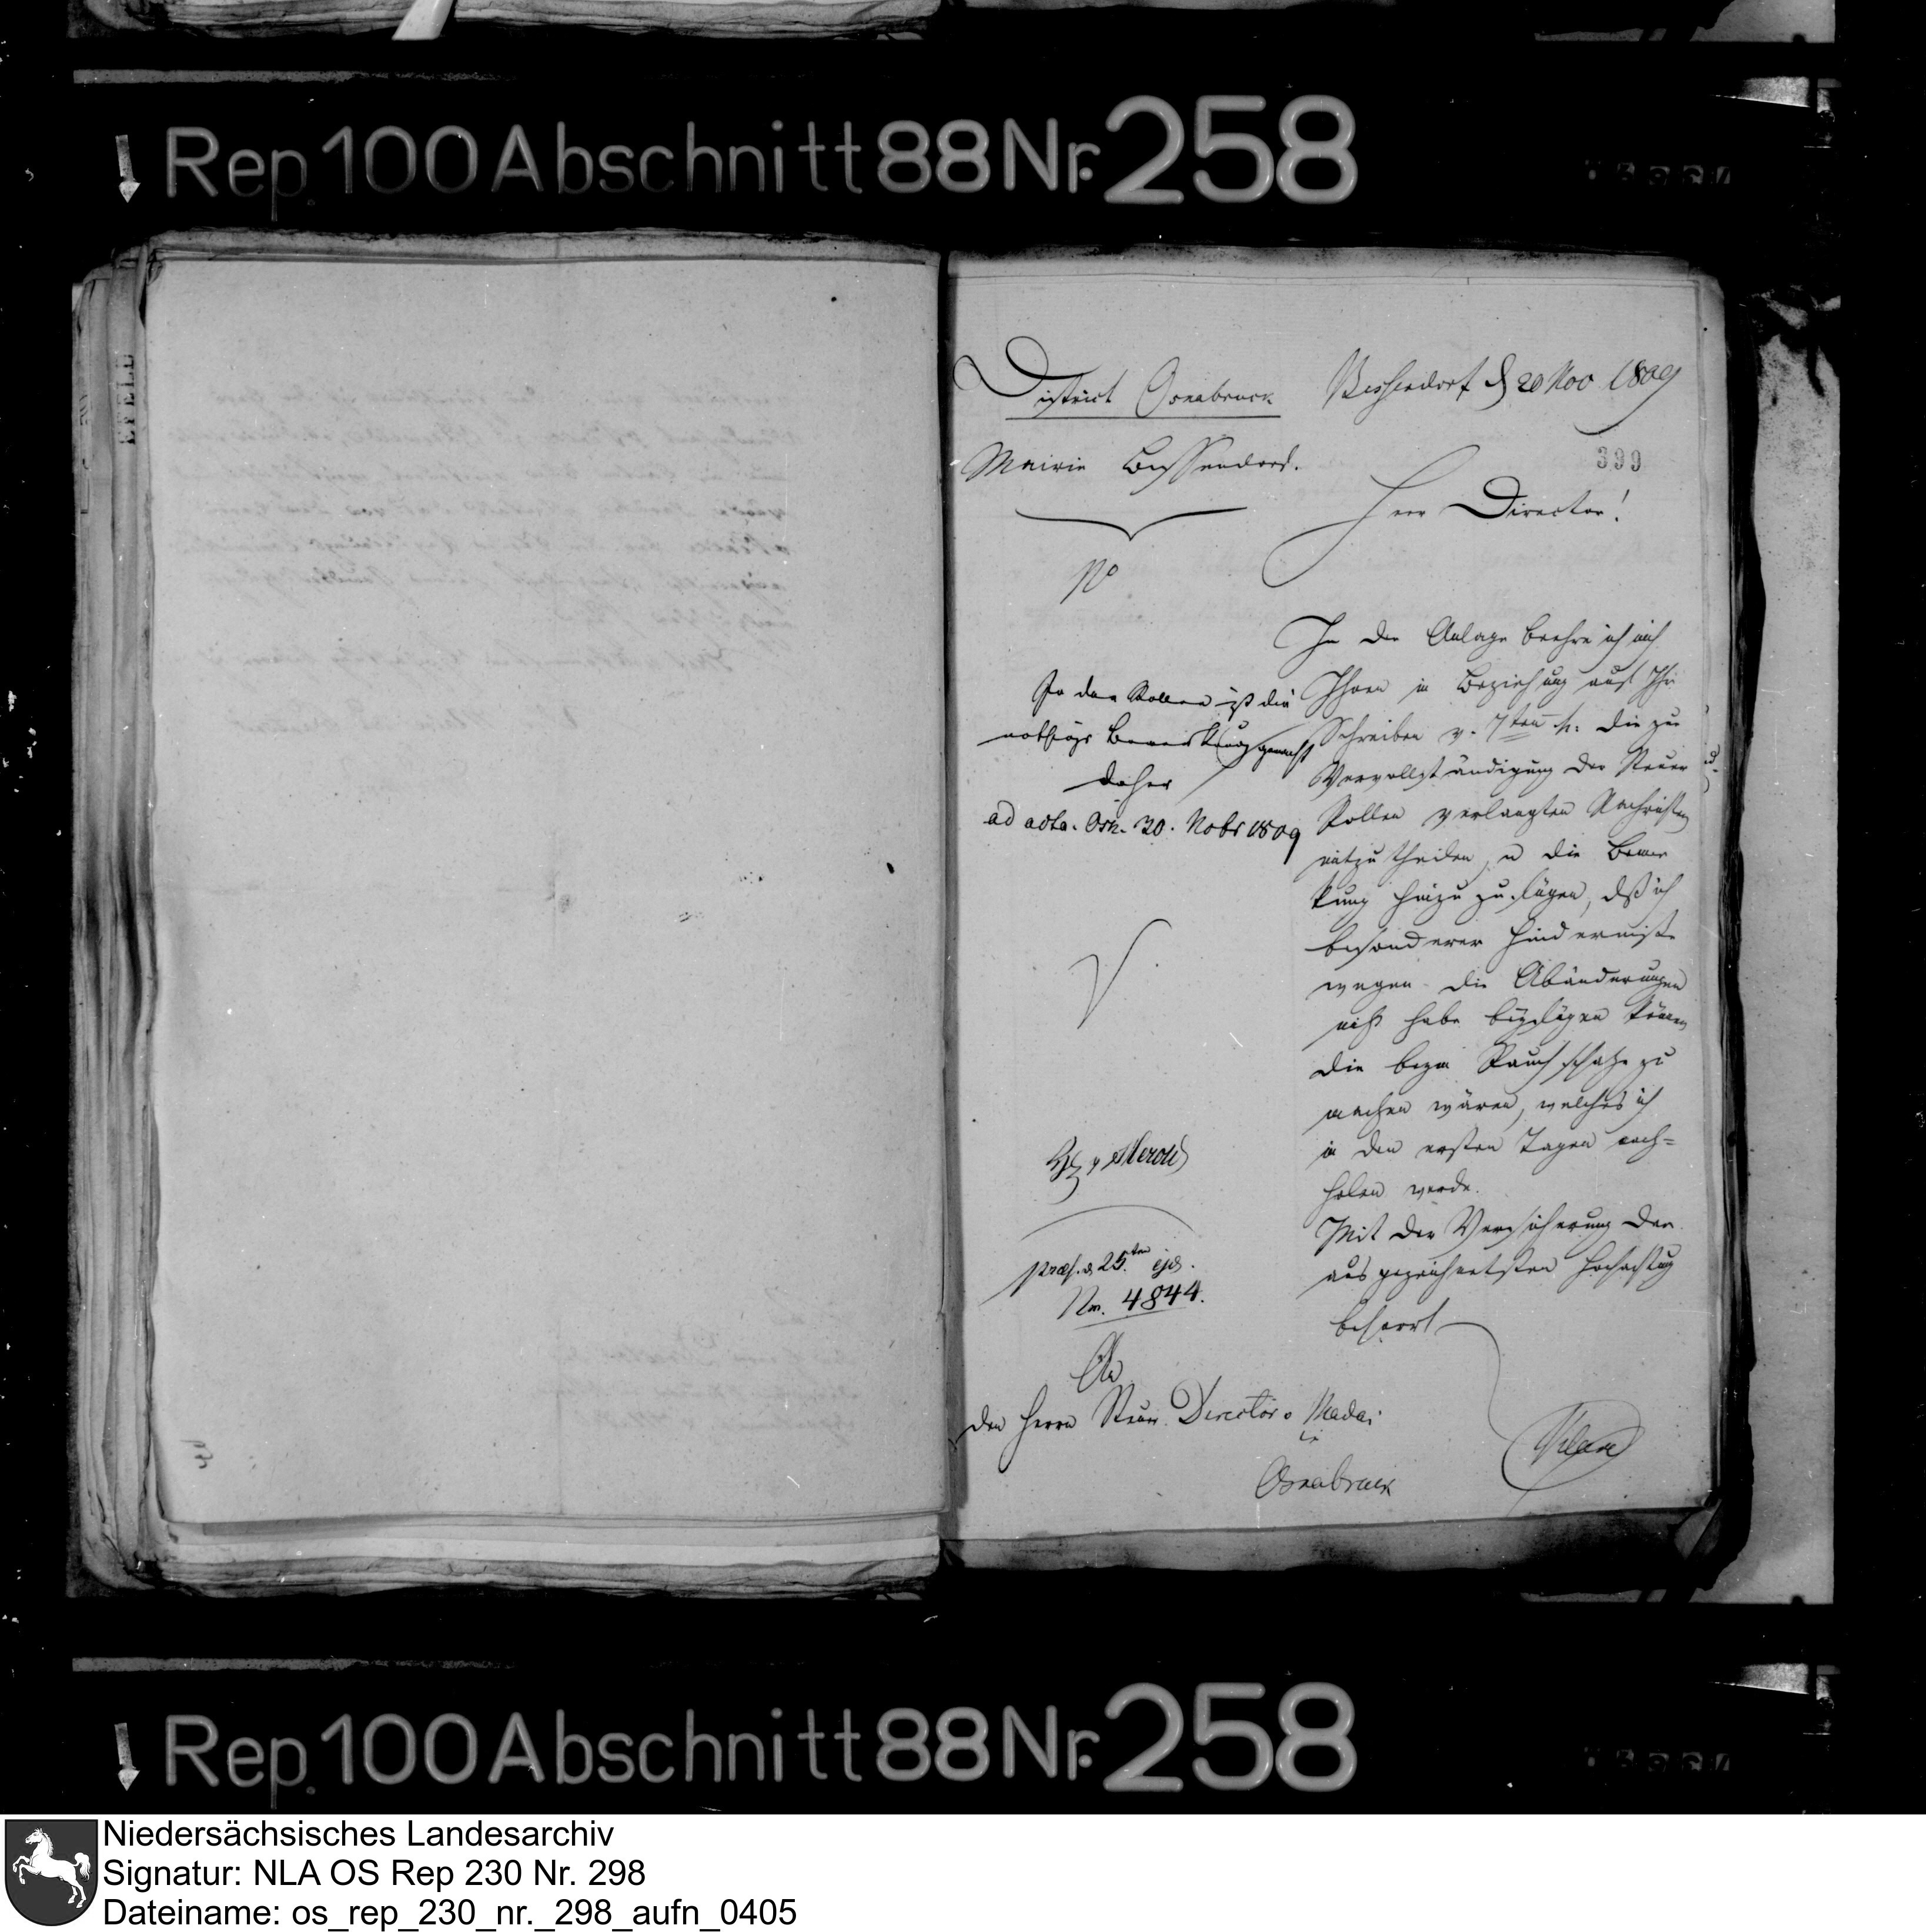 Rep. 100 Abschnitt 88 Nr. 258
District Osnabruck
Bissendorf d 20 Nov 1809
Mairie Bissendorf.
399
Herr Director!
No
In der Anlage beehre ich mich
Ihnen in Beziehung auf Ihr
Schreiben v. 7ten h: die zur
Vervollständigung der Steuer
Rollen verlangten Nachrichten
mitzutheilen, u die Bemer
kung hinzu zu fügen, dß ich
besonderer Hindernisse
wegen die Abänderungen
nicht habe beyfügen können
die beym Rauchschatze zu
machen wären, welches ich
in den ersten Tagen nach=
holen werde.
Mit der Versicherung der
ausgezeichnetsten Hochachtung
beharrt
In den Rollen ist die
nothige Bemerkung gemacht
daher
ad acta. Osn. 30. Nobr 1809
praes. d 25.ten ejd.
Nr. 4844.
An
den Herrn Steuer Director v Madai
in
Osnabruck
Rep. 100 Abschnitt 88 Nr. 258
Niedersächsisches Landesarchiv
Signatur: NLA OS Rep 230 Nr. 298
Dateiname: os_rep_230_nr._298_aufn_0405